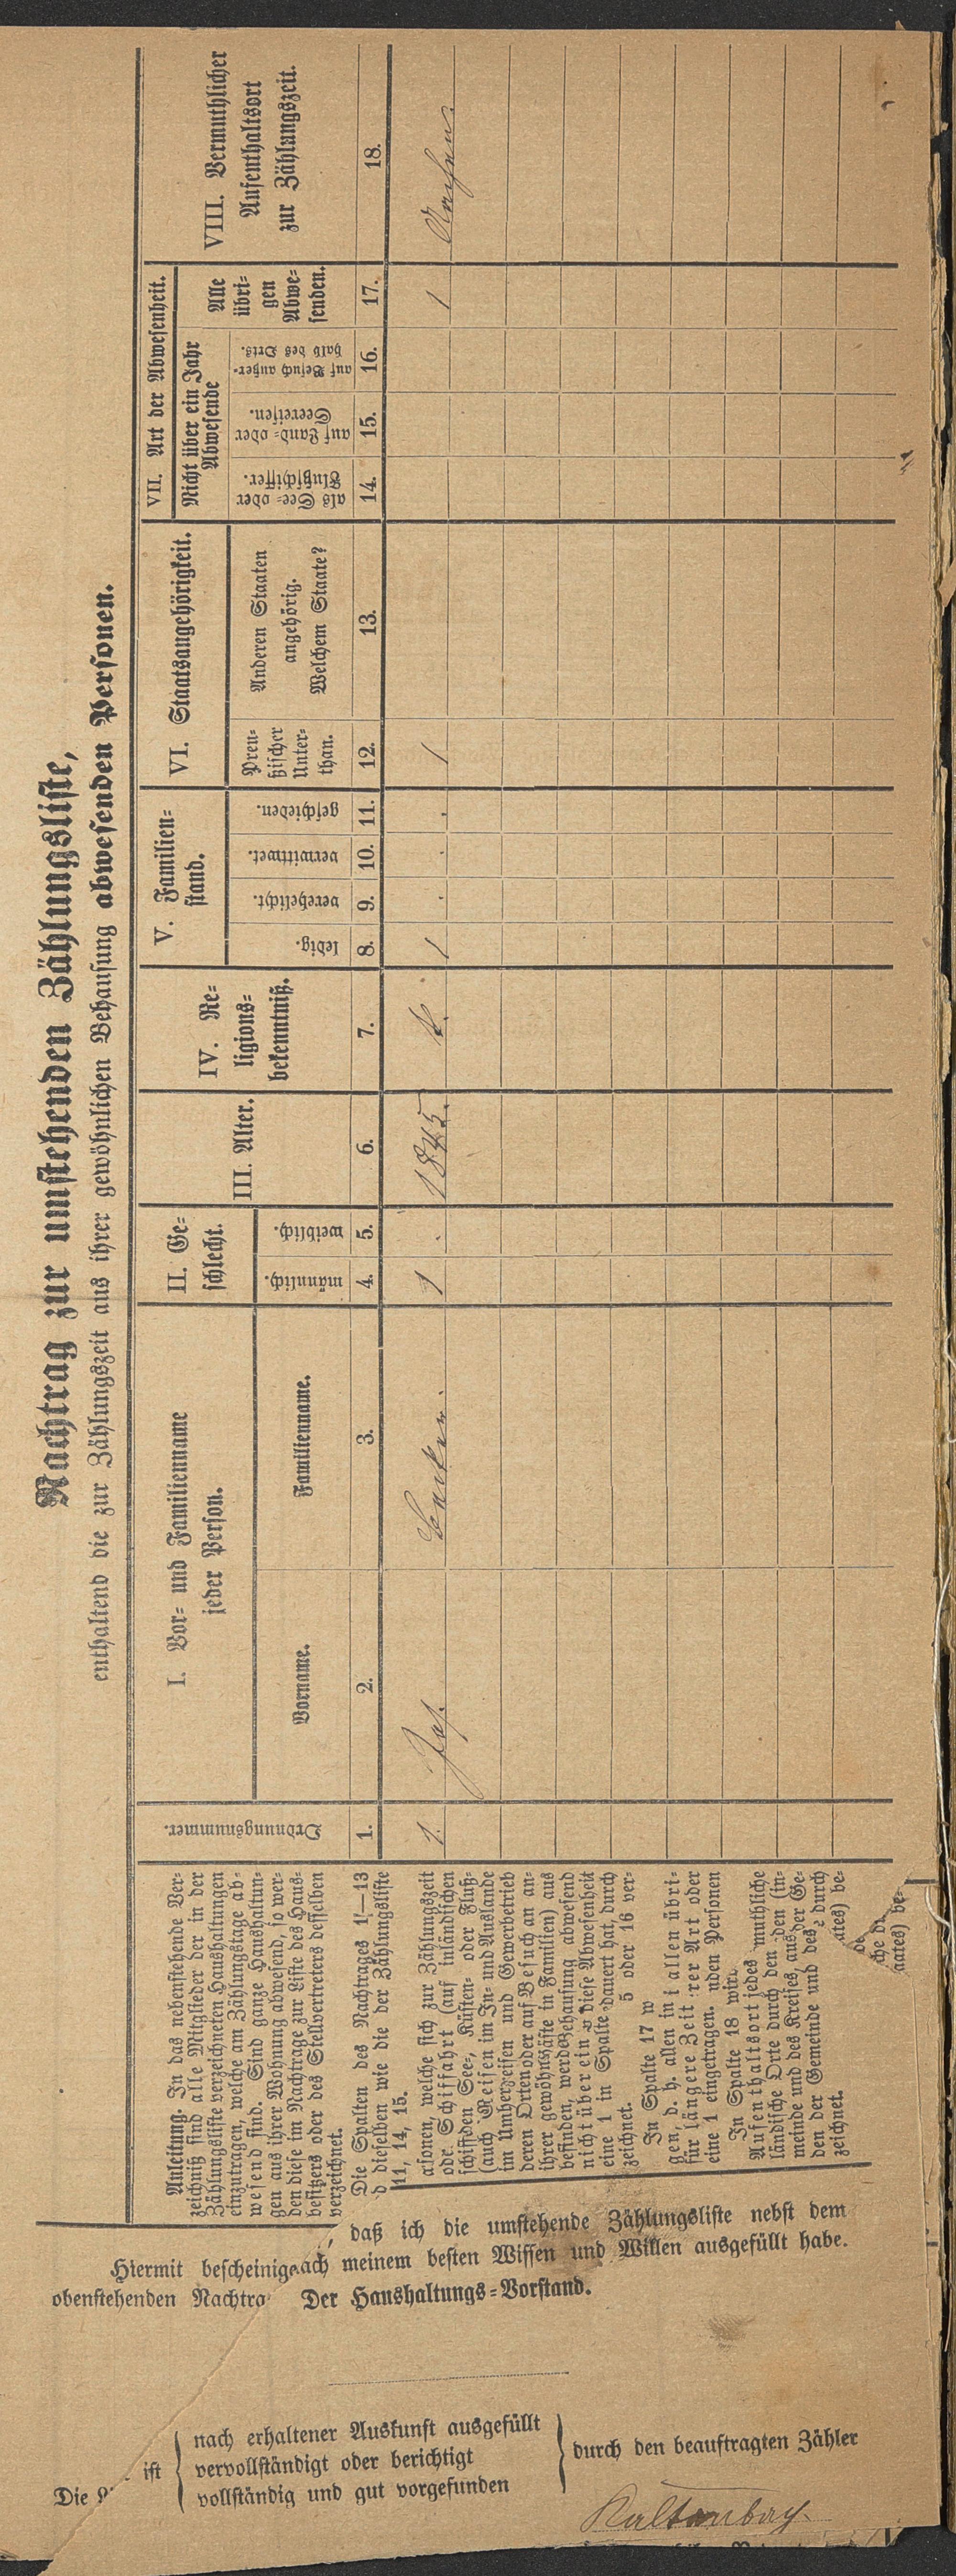 Nachtrag zur umstehenden Zählungsliste,
enthaltend die zur Zählungszeit aus ihrer gewöhnlichen Behausung abwesenden Personen.
Anleitung. In das nebenstehende Ver-
zeichniß sind alle Mitglieder der in der
Zählungsliste verzeichneten Haushaltungen
einzutragen, welche am Zählungstage ab-
wesend sind. Sind ganze Haushaltun-
gen aus ihrer Wohnung abwesend, so wer-
den diese im Nachtrage zur Liste des Haus-
besitzers oder des Stellvertreters desselben
verzeichnet.
Die Spalten des Nachtrages 1—13
d dieselben wie die der Zählungsliste
11, 14, 15.
rsonen, welche sich zur Zählungszeit
oder Schiffahrt (auf inländischen
schiffen See-, Küsten- oder Fluß-
(auch Reisen im In- und Auslande
im Umherreisen und Gewerbetrieb
deren Orten oder auf Besuch an an-
ihrer gewöhn Gäste in Familien) aus
befinden, werd Behausung abwesend
nicht über ein diese Abwesenheit
eine 1 in Spalte dauert hat, durch
zeichnet. 5 oder 16 ver-
In Spalte 17 w
gen, d. h. allen in allen übri-
für längere Zeit rer Art oder
eine 1 eingetragen. nden Personen
In Spalte 18 wird
Aufenthaltsort jedes muthliche
ländische Orte durch den den (in-
meinde und des Kreises, aus der Ge-
den der Gemeinde und des durch
zeichnet. ates) be-
de
che
aates) be-
Ordnungsnummer.
I. Vor- und Familienname
jeder Person.
Vorname.
Familienname.
II. Ge-
schlecht.
männlich.
weiblich.
III. Alter.
IV. Re-
ligions-
bekenntniß.
V. Familien-
stand.
ledig.
verehelicht.
verwittwet.
geschieden.
VI. Staatsangehörigkeit.
Preu-
ßischer
Unter-
than.
Anderen Staaten
angehörig.
Welchem Staate?
VII. Art der Abwesenheit.
Nicht über ein Jahr
Abwesende
als See- oder
Flußschiffer.
auf Land- oder
Seereisen.
auf Besuch außer-
halb des Orts.
Alle
übri-
gen
Abwe-
senden.
VIII. Vermuthlicher
Aufenthaltsort
zur Zählungszeit.
1. 2. 3. 4. 5. 6. 7. 8. 9. 10. 11. 12. 13. 14. 15. 16. 17. 18.
1. Jos. 1 1845. k. 1 1 1 Aachen.
Hiermit bescheinig daß ich die umstehende Zählungsliste nebst dem
obenstehenden Nachtra nach meinem besten Wissen und Willen ausgefüllt habe.
Der Haushaltungs-Vorstand.
Die ist
nach erhaltener Auskunft ausgefüllt
vervollständigt oder berichtigt
vollständig und gut vorgefunden
durch den beauftragten Zähler
Kaltenbach.